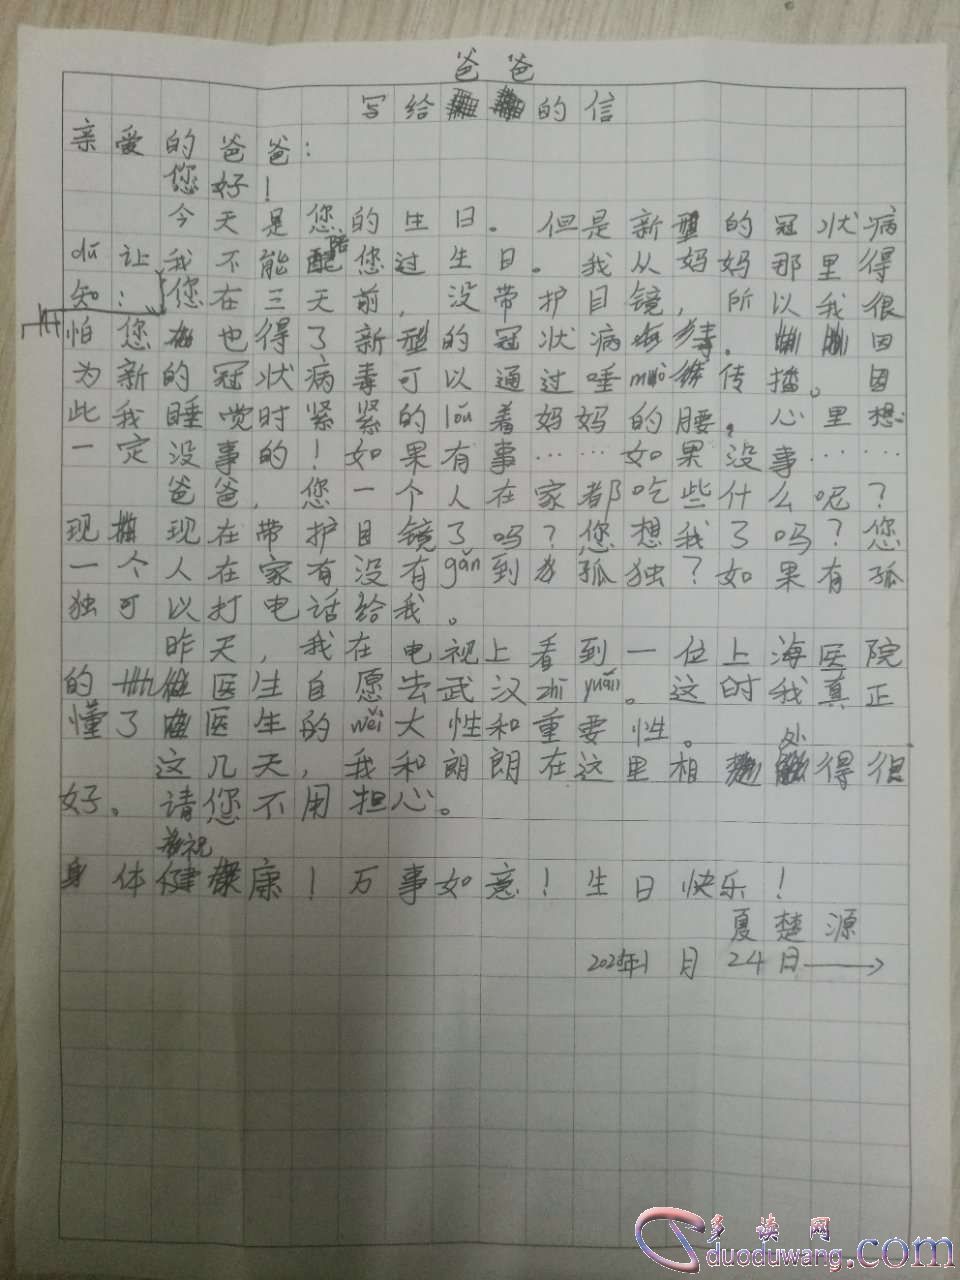 爸爸
写给的信
亲爱的爸爸:
您好!
今天是您的生日。但是新型的冠状病
dú让我不能陪您过生日。我从妈妈那里得
知:您在三天前,没带护目镜,所以我很
怕您也得了新型的冠状病毒。因
为新的冠状病毒可以通过唾mò传播。因
此我睡觉时紧紧的lǒu着妈妈的腰。心里想:
一定没事的!如果有事……如果没事……
爸爸,您一个人在家都吃些什么呢?
现现在带护目镜了吗?您想我了吗?您
一个人在家有没有gǎn到孤独?如果有孤
独可以打电话给我。
昨天,我在电视上看到一位上海医院
的医生自愿去武汉zhī yuán。这时我真正
懂了医生的wěi大性和重要性。
这几天,我和朗朗在这里相处得很
好。请您不用担心。
祝
身体健康!万事如意!生日快乐!
夏楚源
2020年1月24日
多读网
duoduwang.com